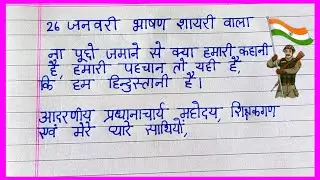 26 जनवरी भाषण शायरी वाला
ना पूछो जमाने से क्या हमारी कहानी
है, हमारी पहचान तो यही है,
कि हम हिन्दुस्तानी है।
आदरणीय प्रधानाचार्य महोदय, शिक्षकगण
एवं मेरे प्यारे साथियों,